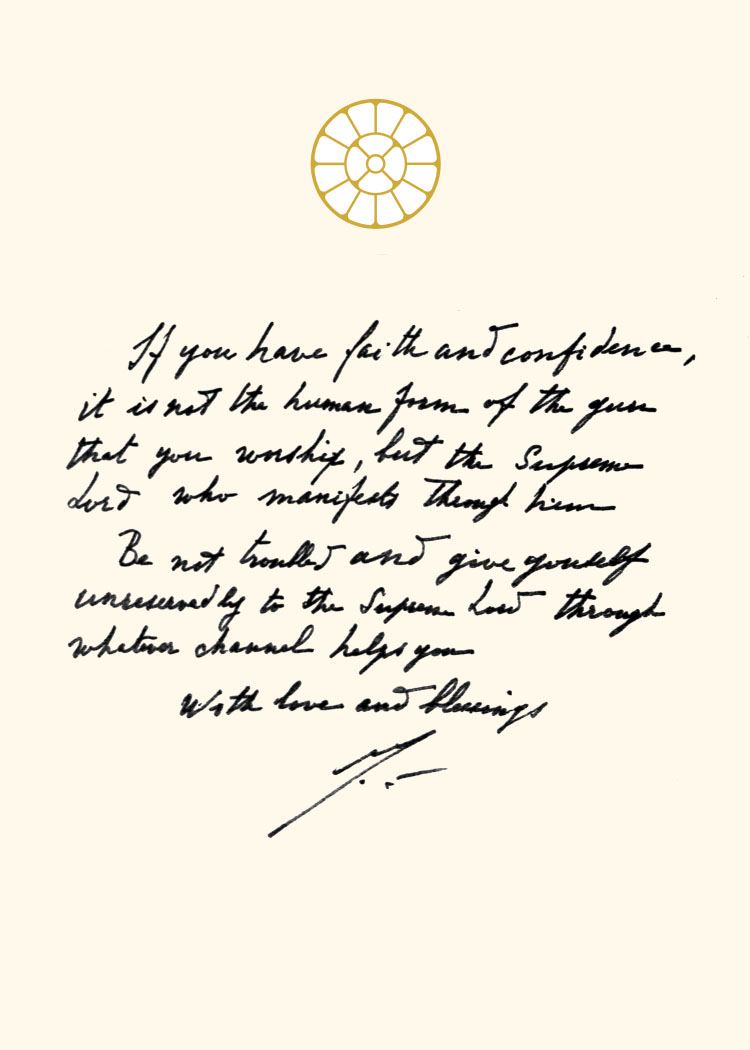 If you have faith and confidence,
it is not the human form of the guru
that you worship, but the Supreme
Lord who manifests through him
Be not troubled and give yourself
unreservedly to the Supreme Lord through
whatever channel helps you
With love and blessings